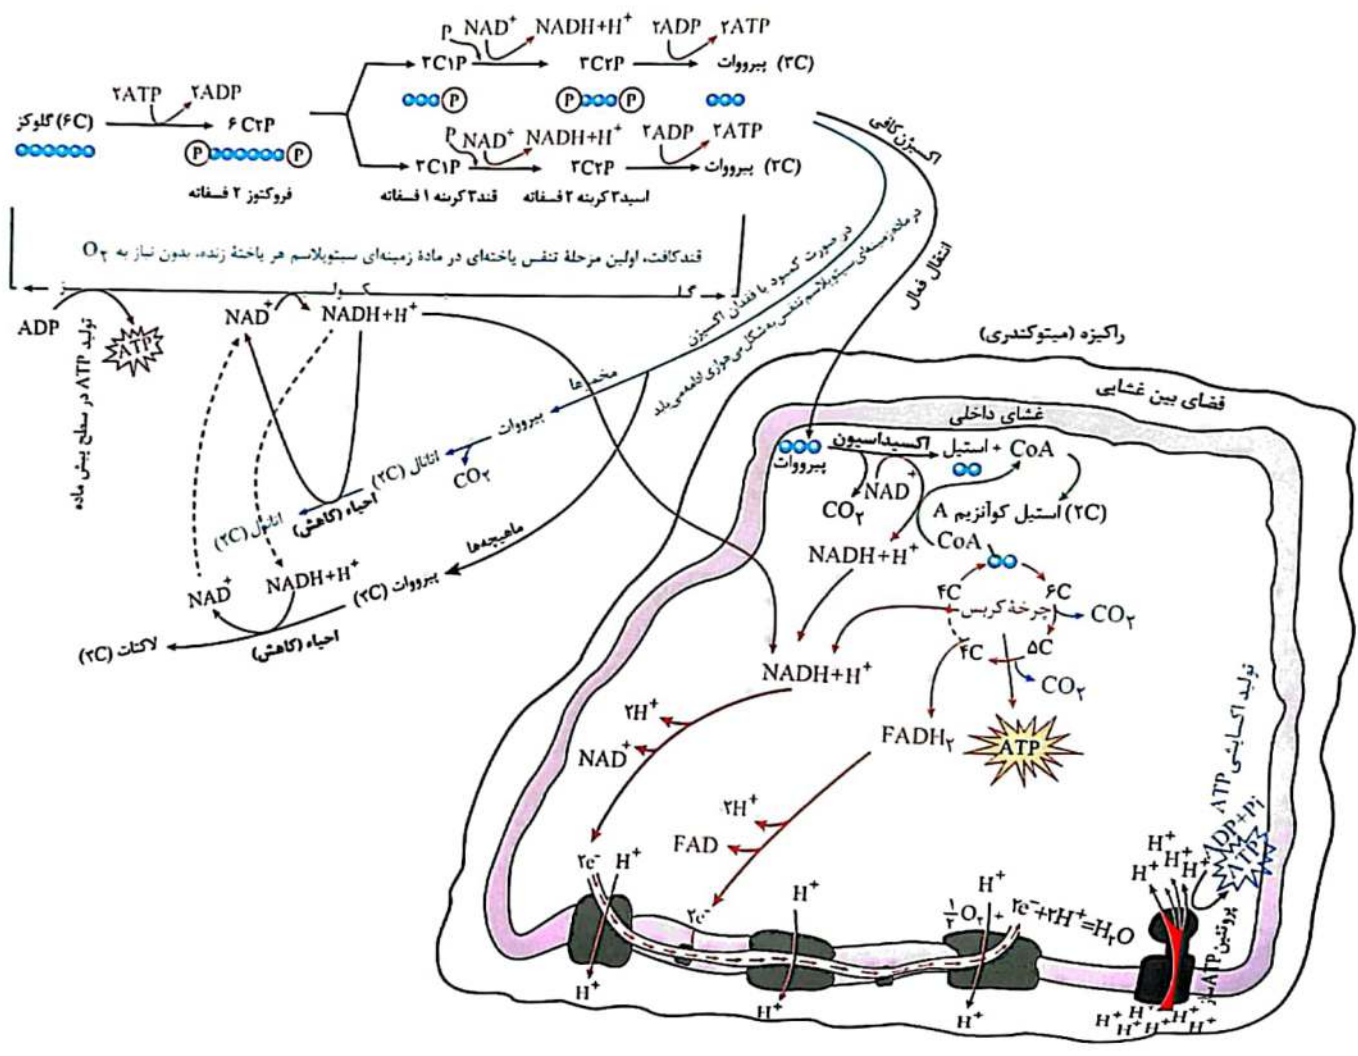 P NAD⁺ NADH+H⁺ ۲ADP ۲ATP
۳C۱P ۳C۲P پیرووات (۳C)
P P P
۲ATP ۲ADP
گلوکز (۶C) ۶C۲P
P P
فروکتوز ۲ فسفاته
P NAD⁺ NADH+H⁺ ۲ADP ۲ATP
۳C۱P ۳C۲P پیرووات (۳C)
قند۳ کربنه ۱ فسفاته اسید۳ کربنه ۲ فسفاته
قندکافت، اولین مرحلهٔ تنفس یاخته‌ای در مادهٔ زمینه‌ای سیتوپلاسم هر یاختهٔ زنده، بدون نیاز به O₂
گلیکولیز
ADP ATP
تولید ATP در سطح پیش ماده
NAD⁺ NADH+H⁺
اکسیژن کافی
انتقال فعال
در صورت کمبود یا فقدان اکسیژن
در ماده زمینه‌ای سیتوپلاسم تنفس به شکل بی‌هوازی ادامه می‌یابد
مخمرها
پیرووات
CO₂
اتانال (۲C)
احیاء (کاهش)
اتانول (۲C)
ماهیچه‌ها
پیرووات (۳C)
NAD⁺ NADH+H⁺
احیاء (کاهش)
لاکتات (۳C)
راکیزه (میتوکندری)
فضای بین غشایی
غشای داخلی
پیرووات
اکسیداسیون
استیل + CoA
CO₂ NAD⁺
استیل کوآنزیم A (۲C)
NADH+H⁺ CoA
۴C ۶C
چرخهٔ کربس
CO₂
۴C ۵C
CO₂
NADH+H⁺
FADH₂ ATP
۲H⁺
NAD⁺
۲H⁺
FAD
۲e⁻ H⁺
۲e⁻
H⁺
H⁺
۱/۲ O₂ + ۲e⁻+۲H⁺=H₂O
H⁺
H⁺
H⁺
تولید اکسایشی ATP
DP+Pi
ATP
H⁺ H⁺ H⁺ H⁺
پروتئین ATP ساز
H⁺ H⁺ H⁺ H⁺ H⁺ H⁺